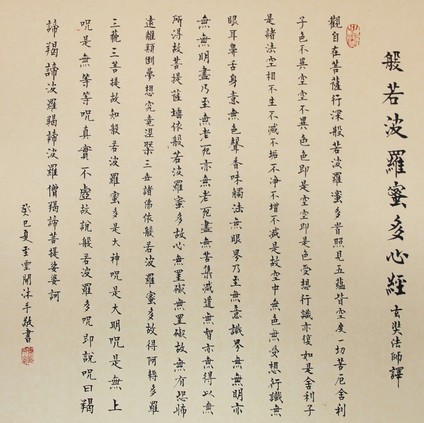 般若波羅蜜多心經 玄奘法師譯
觀自在菩薩行深般若波羅蜜多時照見五蘊皆空度一切苦厄舍利
子色不異空空不異色色即是空空即是色受想行識亦復如是舍利子
是諸法空相不生不滅不垢不淨不增不減是故空中無色無受想行識無
眼耳鼻舌身意無色聲香味觸法無眼界乃至無意識界無無明亦
無無明盡乃至無老死亦無老死盡無苦集滅道無智亦無得以無
所得故菩提薩埵依般若波羅蜜多故心無罣礙無罣礙故無有恐怖
遠離顛倒夢想究竟涅槃三世諸佛依般若波羅蜜多故得阿耨多羅
三藐三菩提故知般若波羅蜜多是大神咒是大明咒是無上
咒是無等等咒真實不虛故說般若波羅蜜多咒即說咒曰羯
諦羯諦波羅羯諦波羅僧羯諦菩提娑婆訶
癸巳夏至雲間沐手敬書